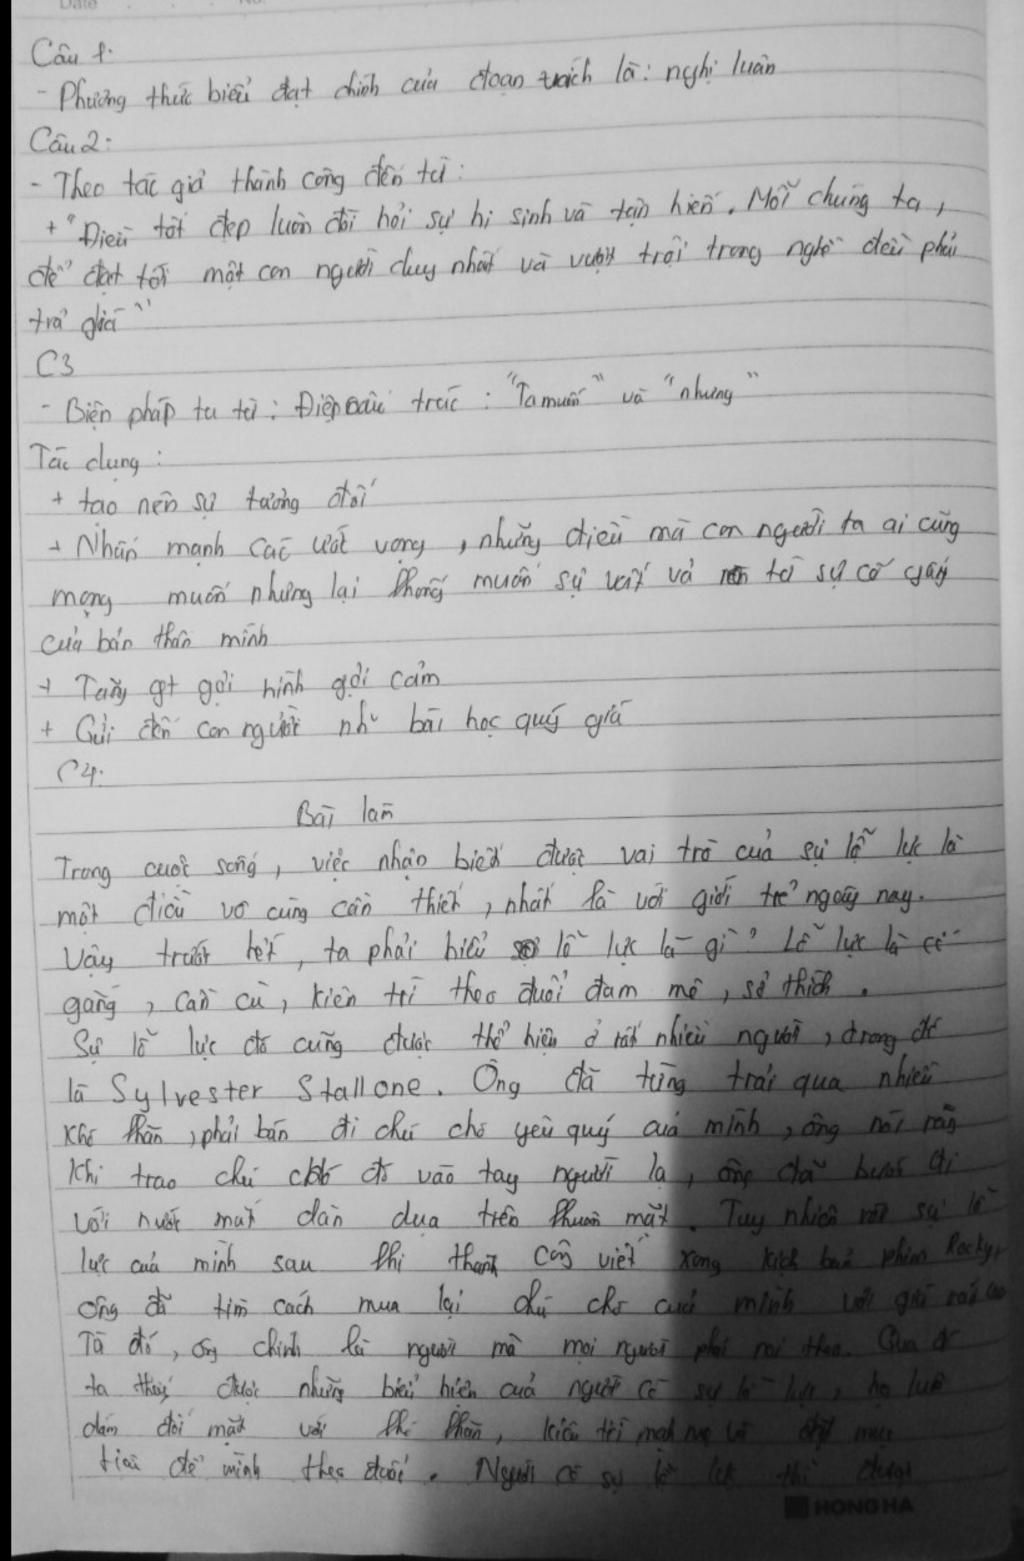 Date No.
Câu 1.
- Phương thức biểu đạt chính của đoạn trích là: nghị luân
Câu 2:
- Theo tác giả thành công đến từ:
+ "Điều tốt đẹp luôn đòi hỏi sự hi sinh và tận hiến. Mỗi chúng ta,
để đạt tới một con người duy nhất và vượt trội trong nghề đều phải
trả giá"
C3
- Biện pháp tu từ: Điệp cấu trúc: "Ta muốn" và "nhưng"
Tác dụng:
+ tạo nên sự tương đối
+ Nhấn mạnh các ước vọng, những điều mà con người ta ai cũng
mong muốn nhưng lại không muốn sự vất vả từ sự cố gắng
của bản thân mình
+ Tăng gt gợi hình gợi cảm
+ Gửi đến con người nh~ bài học quý giá
C4.
Bài làm
Trong cuộc sống, việc nhận biết được vai trò của sự lỗ lực là
một điều vô cùng cần thiết, nhất là với giới trẻ ngày nay.
Vậy trước hết, ta phải hiểu lỗ lực là gì? Lỗ lực là cố
gắng, cần cù, kiên trì theo đuổi đam mê, sở thích.
Sự lỗ lực đó cũng được thể hiện ở rất nhiều người, trong đó
là Sylvester Stallone. Ông đã từng trải qua nhiều
khó khăn, phải bán đi chú chó yêu quý của mình, ông nói rằng
khi trao chú chó đó vào tay người lạ, ông đã bước đi
với nước mắt dàn dụa trên khuôn mặt. Tuy nhiên với sự lỗ
lực của mình sau khi thành công viết xong kịch bản phim Rocky,
ông đã tìm cách mua lại chú chó của mình với giá rất cao
Từ đó, ông chính là người mà mọi người phải noi theo. Qua đó
ta thấy được những biểu hiện của người có sự lỗ lực, họ luôn
dám đối mặt với khó khăn, kiên trì mạnh mẽ và đặt mục
tiêu để mình theo đuổi. Người có sự lỗ lực thì được
HONG HA